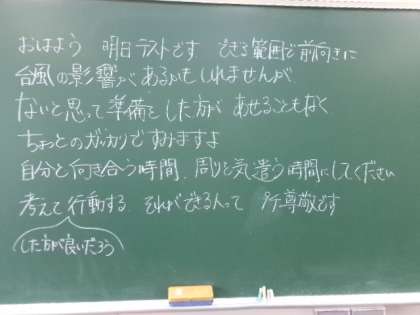 おはよう 明日テストです できる範囲で前向きに
台風の影響があるかもしれませんが
ないと思って準備をした方が あせることもなく
ちょっとのガッカリですみますよ
自分と向き合う時間、周りを気遣う時間にしてください
考えて行動する それができる人って 尊敬です
した方が良いだろう